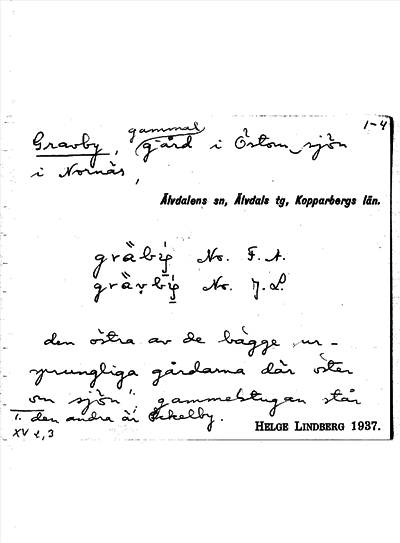 1-4
gammal
Gravby, gård i Östom sjön
i Nornäs,
Älvdalens sn, Älvdals tg, Kopparbergs län.
No. F. A.
No. J. L.
den östra av de bägge ur-
sprungliga gårdarna där öster
om sjön; gammelstugan står
1. den andra är Eckelby.
XV 2, 3
HELGE LINDBERG 1937.